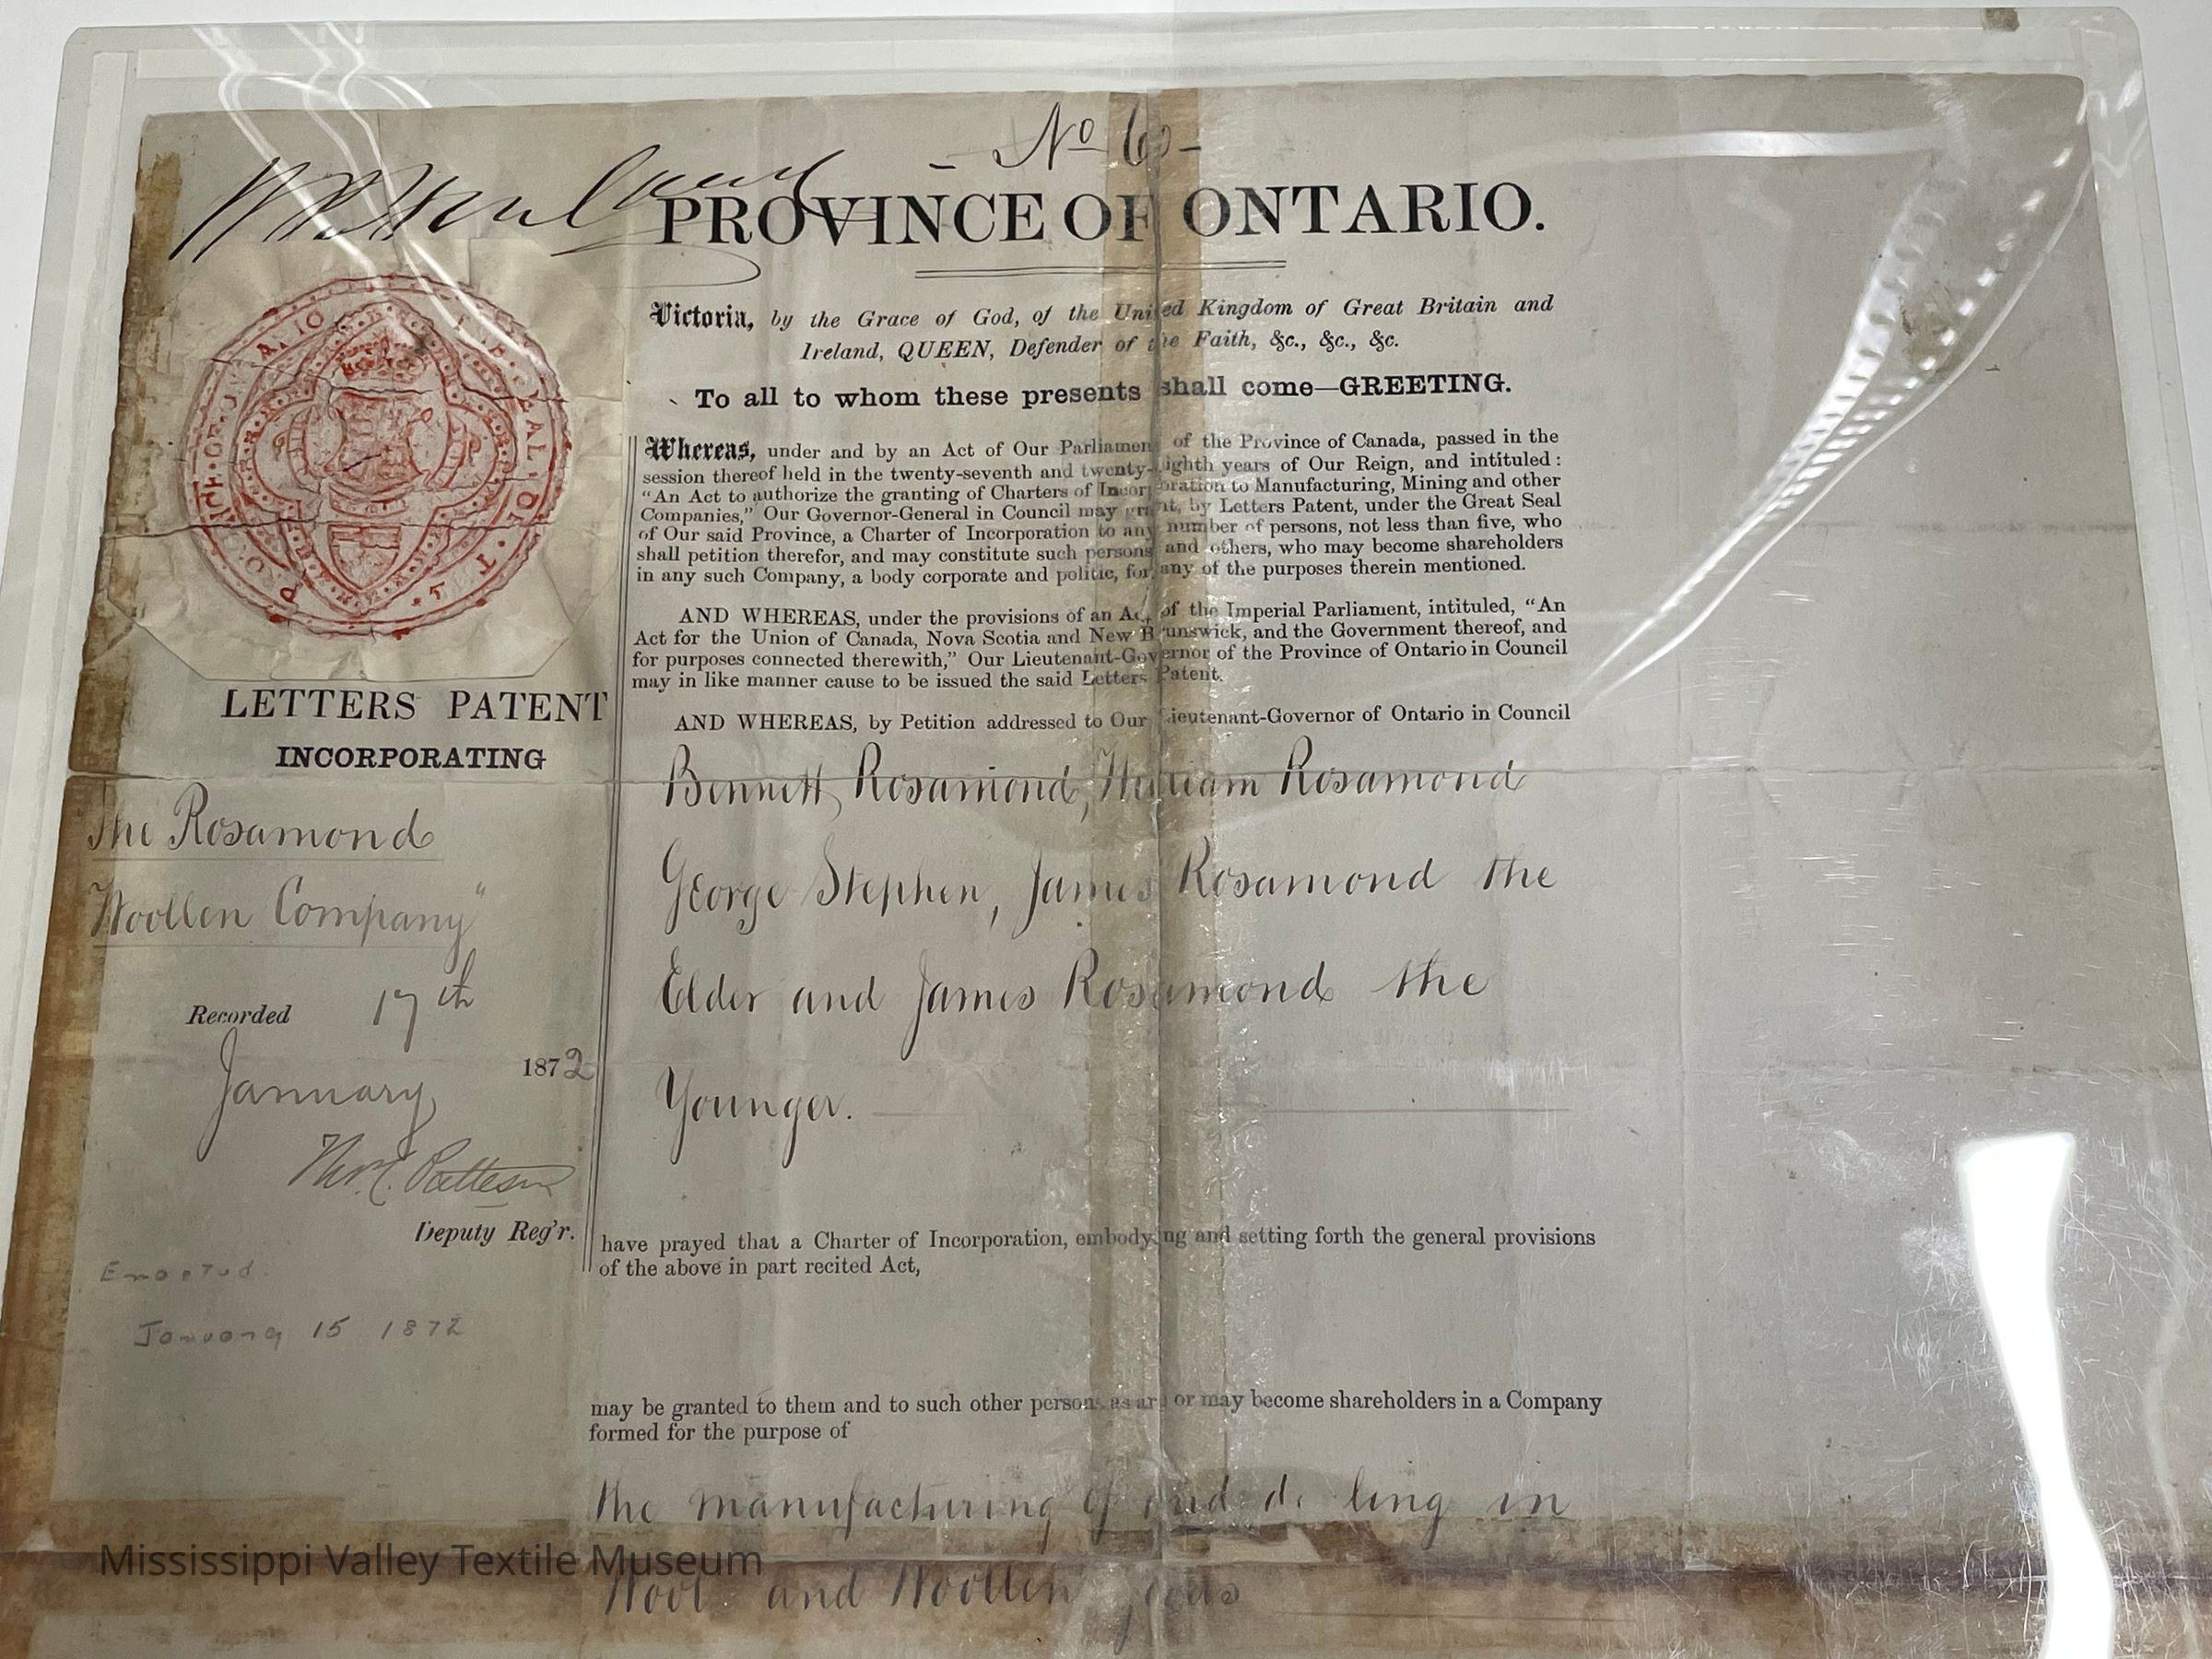 No
PROVINCE OF ONTARIO.
Victoria, by the Grace of God, of the United Kingdom of Great Britain and
Ireland, QUEEN, Defender of the Faith, &c., &c., &c.
To all to whom these presents shall come—GREETING.
Whereas, under and by an Act of Our Parliament of the Province of Canada, passed in the
session thereof held in the twenty-seventh and twenty-eighth years of Our Reign, and intituled:
“An Act to authorize the granting of Charters of Incorporation to Manufacturing, Mining and other
Companies,” Our Governor-General in Council may grant, by Letters Patent, under the Great Seal
of Our said Province, a Charter of Incorporation to any number of persons, not less than five, who
shall petition therefor, and may constitute such persons and others, who may become shareholders
in any such Company, a body corporate and politic, for any of the purposes therein mentioned.
AND WHEREAS, under the provisions of an Act of the Imperial Parliament, intituled, “An
Act for the Union of Canada, Nova Scotia and New Brunswick, and the Government thereof, and
for purposes connected therewith,” Our Lieutenant-Governor of the Province of Ontario in Council
may in like manner cause to be issued the said Letters Patent.
AND WHEREAS, by Petition addressed to Our Lieutenant-Governor of Ontario in Council
Bennett Rosamond, William Rosamond
George Stephen, James Rosamond the
Elder and James Rosamond the
Younger.
have prayed that a Charter of Incorporation, embodying and setting forth the general provisions
of the above in part recited Act,
may be granted to them and to such other persons as are or may become shareholders in a Company
formed for the purpose of
the manufacturing of and dealing in
Wool and Woollen goods
LETTERS PATENT
INCORPORATING
The Rosamond
Woollen Company"
Recorded 17th
January 1872
Deputy Reg'r.
Enacted
January 15 1872
Mississippi Valley Textile Museum